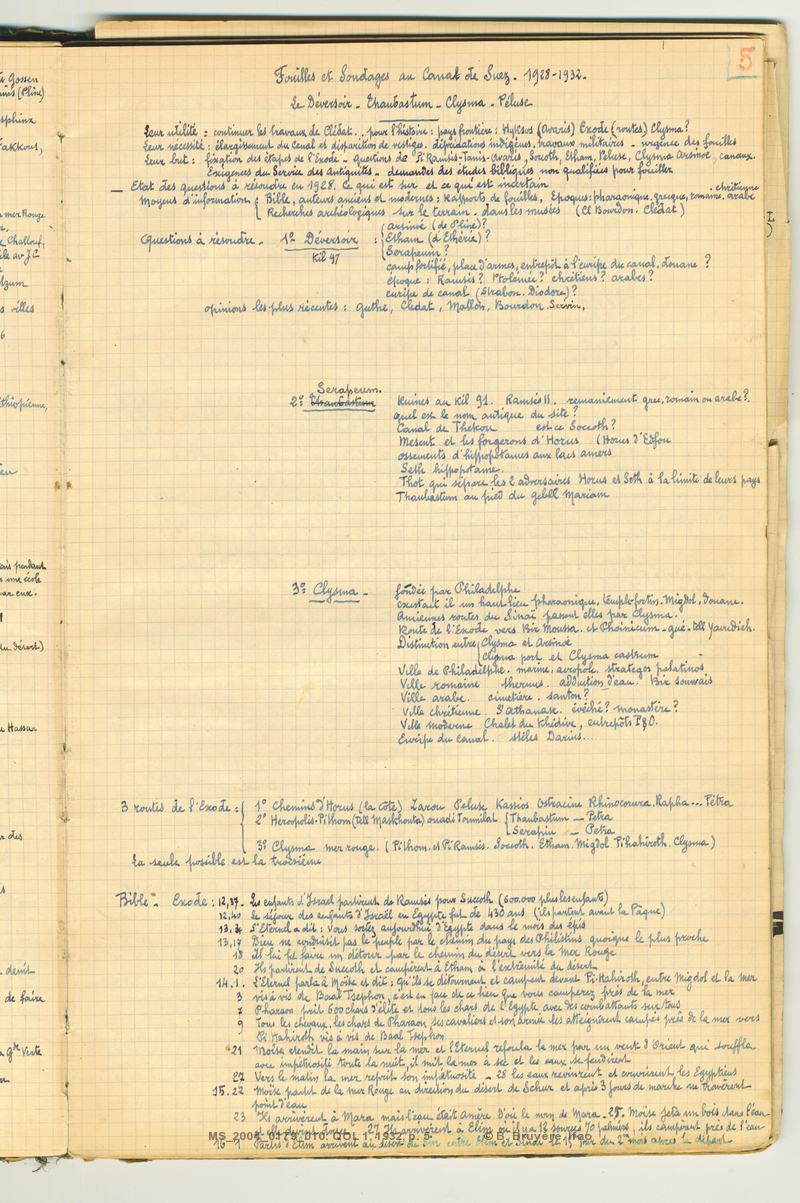 5
Fouilles et Sondages au Canal de Suez - 1928-1932.
Le Déversoir - Thaubastum - Clysma - Péluse
Leur utilité : continuer les travaux de Clédat... pour l'histoire : pays frontière : Hyksos (Avaris) Exode (routes) Clysma?
Leur nécessité : élargissement du Canal et disparition de vestiges. déprédations indigènes, travaux militaires - urgence des fouilles
Leur but : fixation des étapes de l'Exode - Questions de Pi Ramsès-Tanis-Avaris, Socoth, Etham, Peluse, Clysma Arsinoe, canaux.
Exigences du Service des Antiquités - demandes des études bibliques non qualifiées pour fouiller
— Etat des questions à résoudre en 1928. Ce qui est sur et ce qui est incertain
Moyens d'information { Bible, auteurs anciens et modernes : Rapports de fouilles, Epoques : pharaonique, grecque, romaine, chrétienne arabe
Recherches archéologiques sur le terrain - dans les musées (Cl Bourdon. Clédat)
Questions à résoudre - 1° Déversoir : { arsinoé (de Pline)?
Kil 97
Etham (d'Ethérie)?
Serapeum?
camp fortifié, place d'armes, entrepôt à l'euripe du canal, douane ?
époque : Ramsès? Ptolémée? chrétiens? arabes?
euripe de canal (Strabon. Diodore)?
opinions les plus récentes : Guthe, Clédat, Mallon, Bourdon. Servin.
Serapeum.
2° Thaubastum Ruines au Kil 91. Ramsès II. remaniement grec, romain ou arabe?.
quel est le nom antique du site?
Canal de Thekou est ce Soccoth?
Mesent et les forgerons d'Horus (Horus d'Edfou
ossements d'hippopotames aux lacs amers
Seth hippopotame.
Thot qui sépare les 2 adversaires Horus et Seth à la limite de leurs pays
Thaubastum au pied du gebell Mariam
3° Clysma - fondée par Philadelphe
existait il un haut lieu pharaonique, temple-fortin. Migdol, douane.
Anciennes routes du Sinaï passent elles par Clysma.
Route de l'Exode vers Bir Moussa. et Phoinicum - gué - tell Yaurdich.
Distinction entre { Clysma et Arsinoé
Clysma port et Clysma castrum
Ville de Philadelphe. marine, acropole. strateges palatinos
Ville romaine thermes. adduction d'eau. Bir souwais
Ville arabe. cimetière. santon?
Ville chrétienne. St athanase. évêché? monastère?
Ville moderne Chalet du Khédive, entrepôts P&O.
Euripe du canal. stèles Darius...
3 routes de l'Exode : { 1° Chemins d'Horus (la côte) Zarou Peluse Kassios Ostracine Rhinocorura. Rapha ... Pétra
2° Heroopolis-Pithom (Tell Maskhouta) ouadi Toumilat { Thaubastum — Petra
Serapiu — Petra
3° Clysma mer rouge. (Pithom. et Pi Ramsès. Soccoth. Etham. Migdol Pihahiroth. Clysma)
La seule possible est la troisième
Bible - Exode : 12,37. Les enfants d'Israel partirent de Ramsès pour Succoth (600.000 plus les enfants)
12,40 le séjour des enfants d'Israël en Egypte fut de 430 ans (ils partent avant la Pâque)
13.4 L'Eternel a dit : Vous sortez aujourd'hui d'Egypte dans le mois des épis
13,17 Dieu ne conduisit pas le peuple par le chemin du pays des Philistins quoique le plus proche
18 Il lui fit faire un détour par le chemin du désert vers la Mer Rouge
20 Ils partirent de Succoth et campèrent à Etham à l'extrémité du désert
14.1. L'Eternel parla à Moïse et dit : qu'ils se détournent et campent devant Pi-Hahiroth, entre Migdol et la mer
3 vis à vis de Baal Tsephon, c'est en face de ce lieu que vous camperez près de la mer
7 Pharaon prit 600 chars d'élite et tous les chars de l'Egypte avec des combattants sur tous
9 Tous les chevaux, les chars de Pharaon, ses cavaliers et son armée les atteignirent campés près de la mer vers
Pi Hahiroth vis à vis de Baal Tsephon
21 Moïse étendit la main sur la mer et l'Eternel refoula la mer par un vent d'Orient qui souffla
avec impétuosité toute la nuit, il mit la mer à sec et les eaux se fendirent
27 Vers le matin la mer reprit son impétuosité - 28 les eaux revinrent et couvrirent les Egyptiens
15.22 Moïse partit de la mer Rouge en direction du désert de Schur et après 3 jours de marche ne trouvèrent
point d'eau
23 Ils arrivèrent à Mara mais l'eau était amère d'où le nom de Mara - 25. Moïse jeta un bois dans l'eau
et elle devint douce. 27 Ils arrivèrent à Elim où il y a 12 sources 70 palmiers, ils campèrent près de l'eau
16-1 Partis d'Elim arrivent au désert de Sin entre Elim et Sinaï le 15e jour du 2me mois après le départ
MS_2004_0179_010. QOL 1 1932, p. 5 © B. Bruyère, Ifao